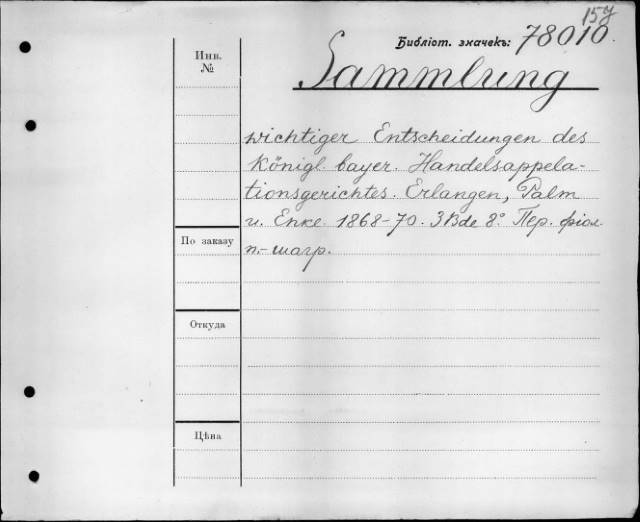 157
Библіот. значекъ: 78010.
Инв.
№
Sammlung
wichtiger Entscheidungen des
Königl. bayer. Handelsappela-
tionsgerichtes. Erlangen, Palm
u. Enke. 1868-70. 3 Bde 8°. Пер. фіол.
п.- шагр.
По заказу
Откуда
Цѣна